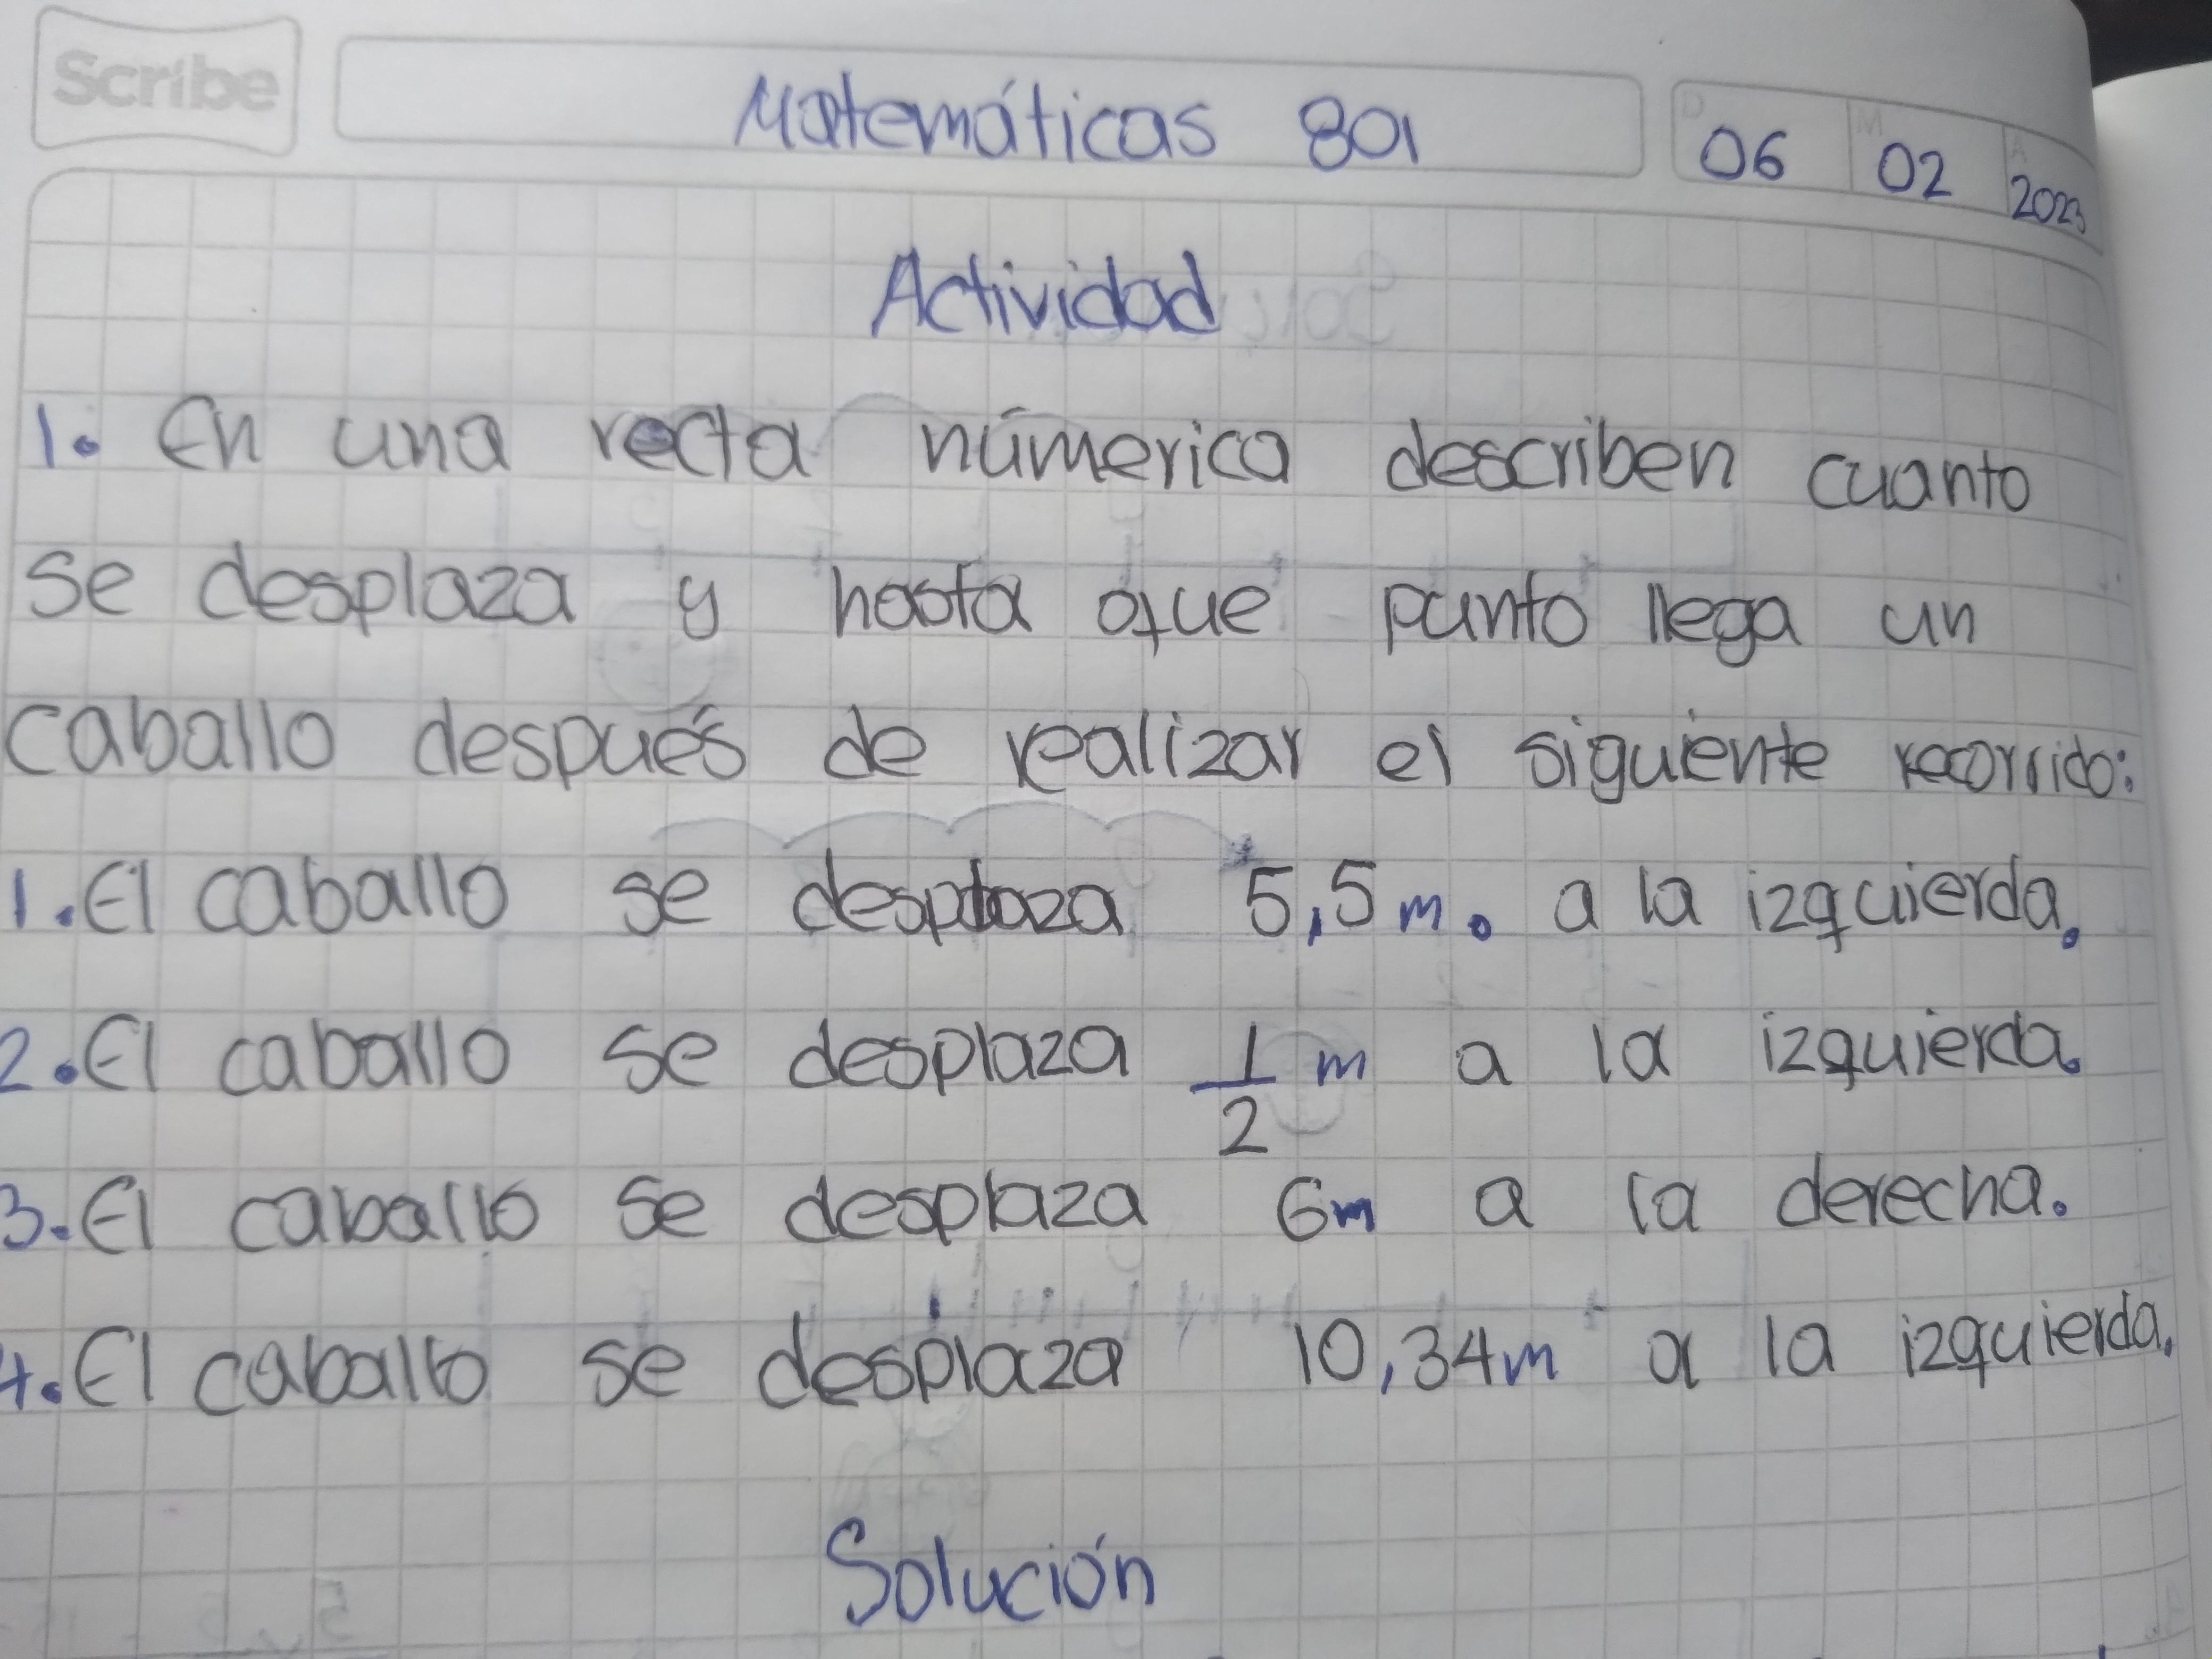 Scribe
Matemáticas 801
D 06 M 02 A 2023
Actividad
1. En una recta númerica describen cuanto
se desplaza y hasta que punto llega un
caballo después de realizar el siguiente recorrido:
1. El caballo se desplaza 5,5m. a la izquierda.
2. El caballo se desplaza 1/2 m a la izquierda.
3. El caballo se desplaza 6m a la derecha.
4. El caballo se desplaza 10,34m a la izquierda.
Solución